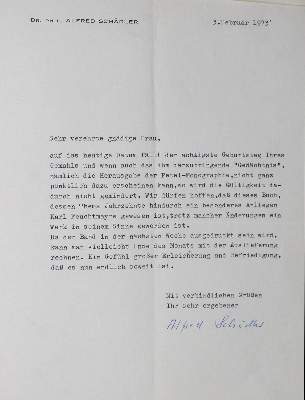 DR. PHIL. ALFRED SCHÄDLER
3. Februar 1973
Sehr verehrte gnädige Frau,
auf das heutige Datum fällt der achzigste Geburtstag Ihres
Gemahls und wenn auch das ihm zuzueignende "Gedächtnis",
nämlich die Herausgabe der Petel-Monographie, nicht ganz
pünktlich dazu erscheinen kann, so wird die Gültigkeit da-
durch nicht gemindert. Wir dürfen hoffen, daß dieses Buch,
dessen Thema Jahrzehnte hindurch ein besonderes Anliegen
Karl Feuchtmayrs gewesen ist, trotz mancher Änderungen ein
Werk in seinem Sinne geworden ist.
Da der Band in der nächsten Woche ausgedruckt sein wird,
kann man vielleicht Ende des Monats mit der Auslieferung
rechnen. Ein Gefühl großer Erleichterung und Befriedigung,
daß es nun endlich soweit ist.
Mit verbindlichen Grüßen
Ihr sehr ergebener
Alfred Schädler